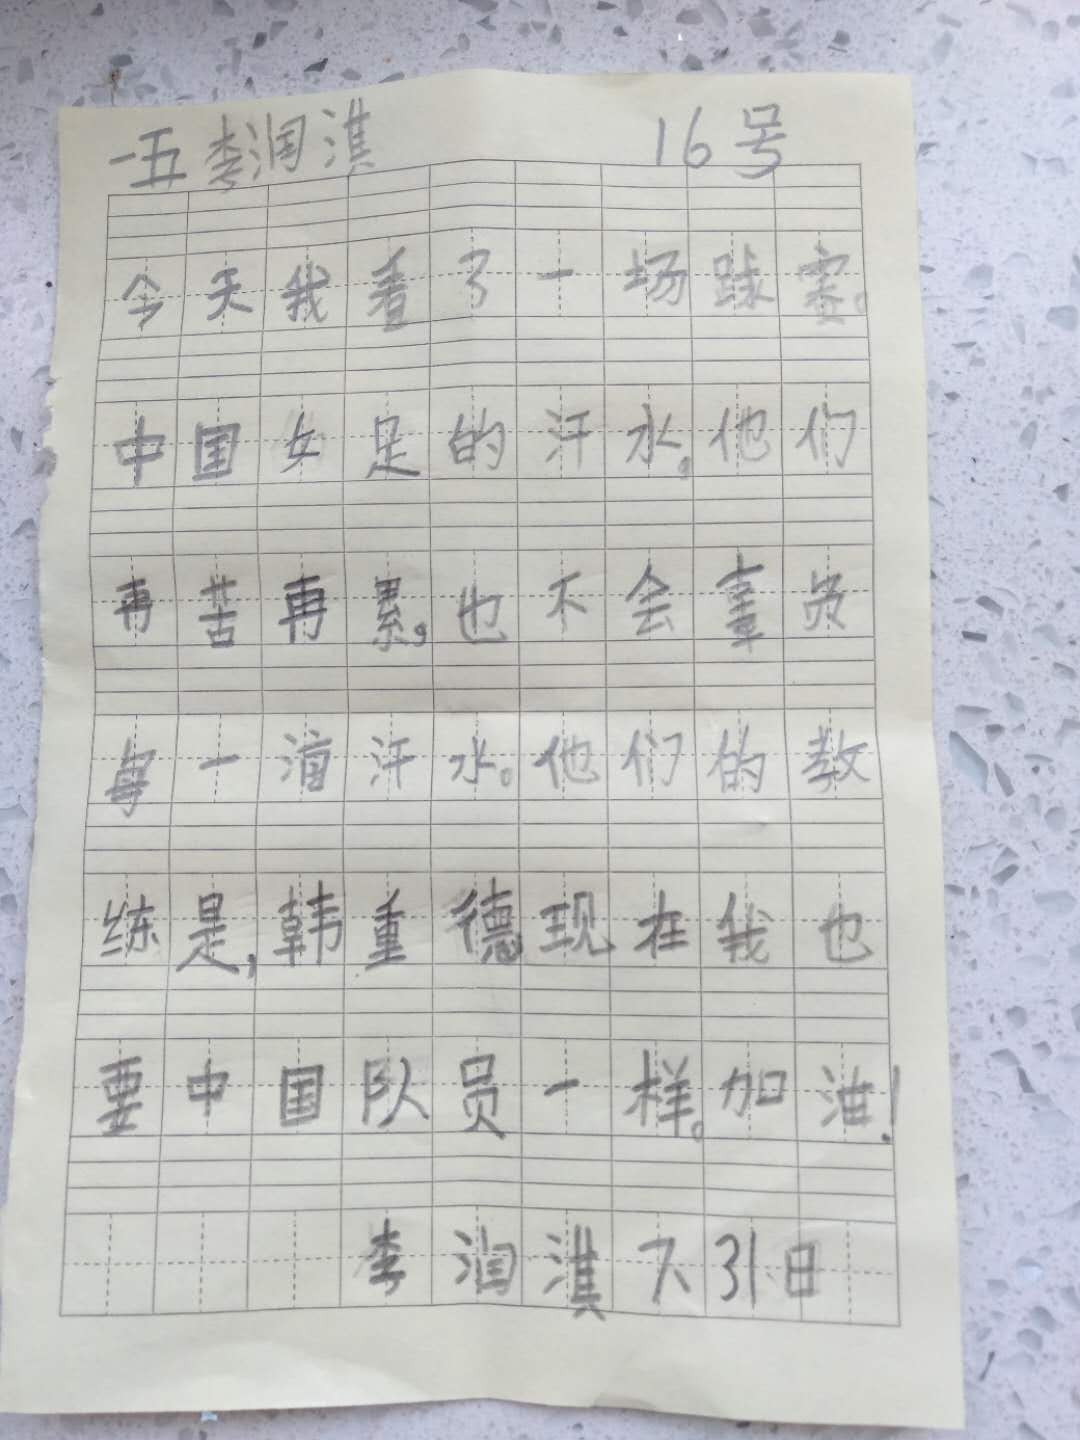 一五李润淇 16号
今天我看了一场球赛。
中国女足的汗水。他们
再苦再累,也不会辜负
每一滴汗水。他们的教
练是,韩重德现在我也
要中国队员一样。加油!
李润淇 7、31、日